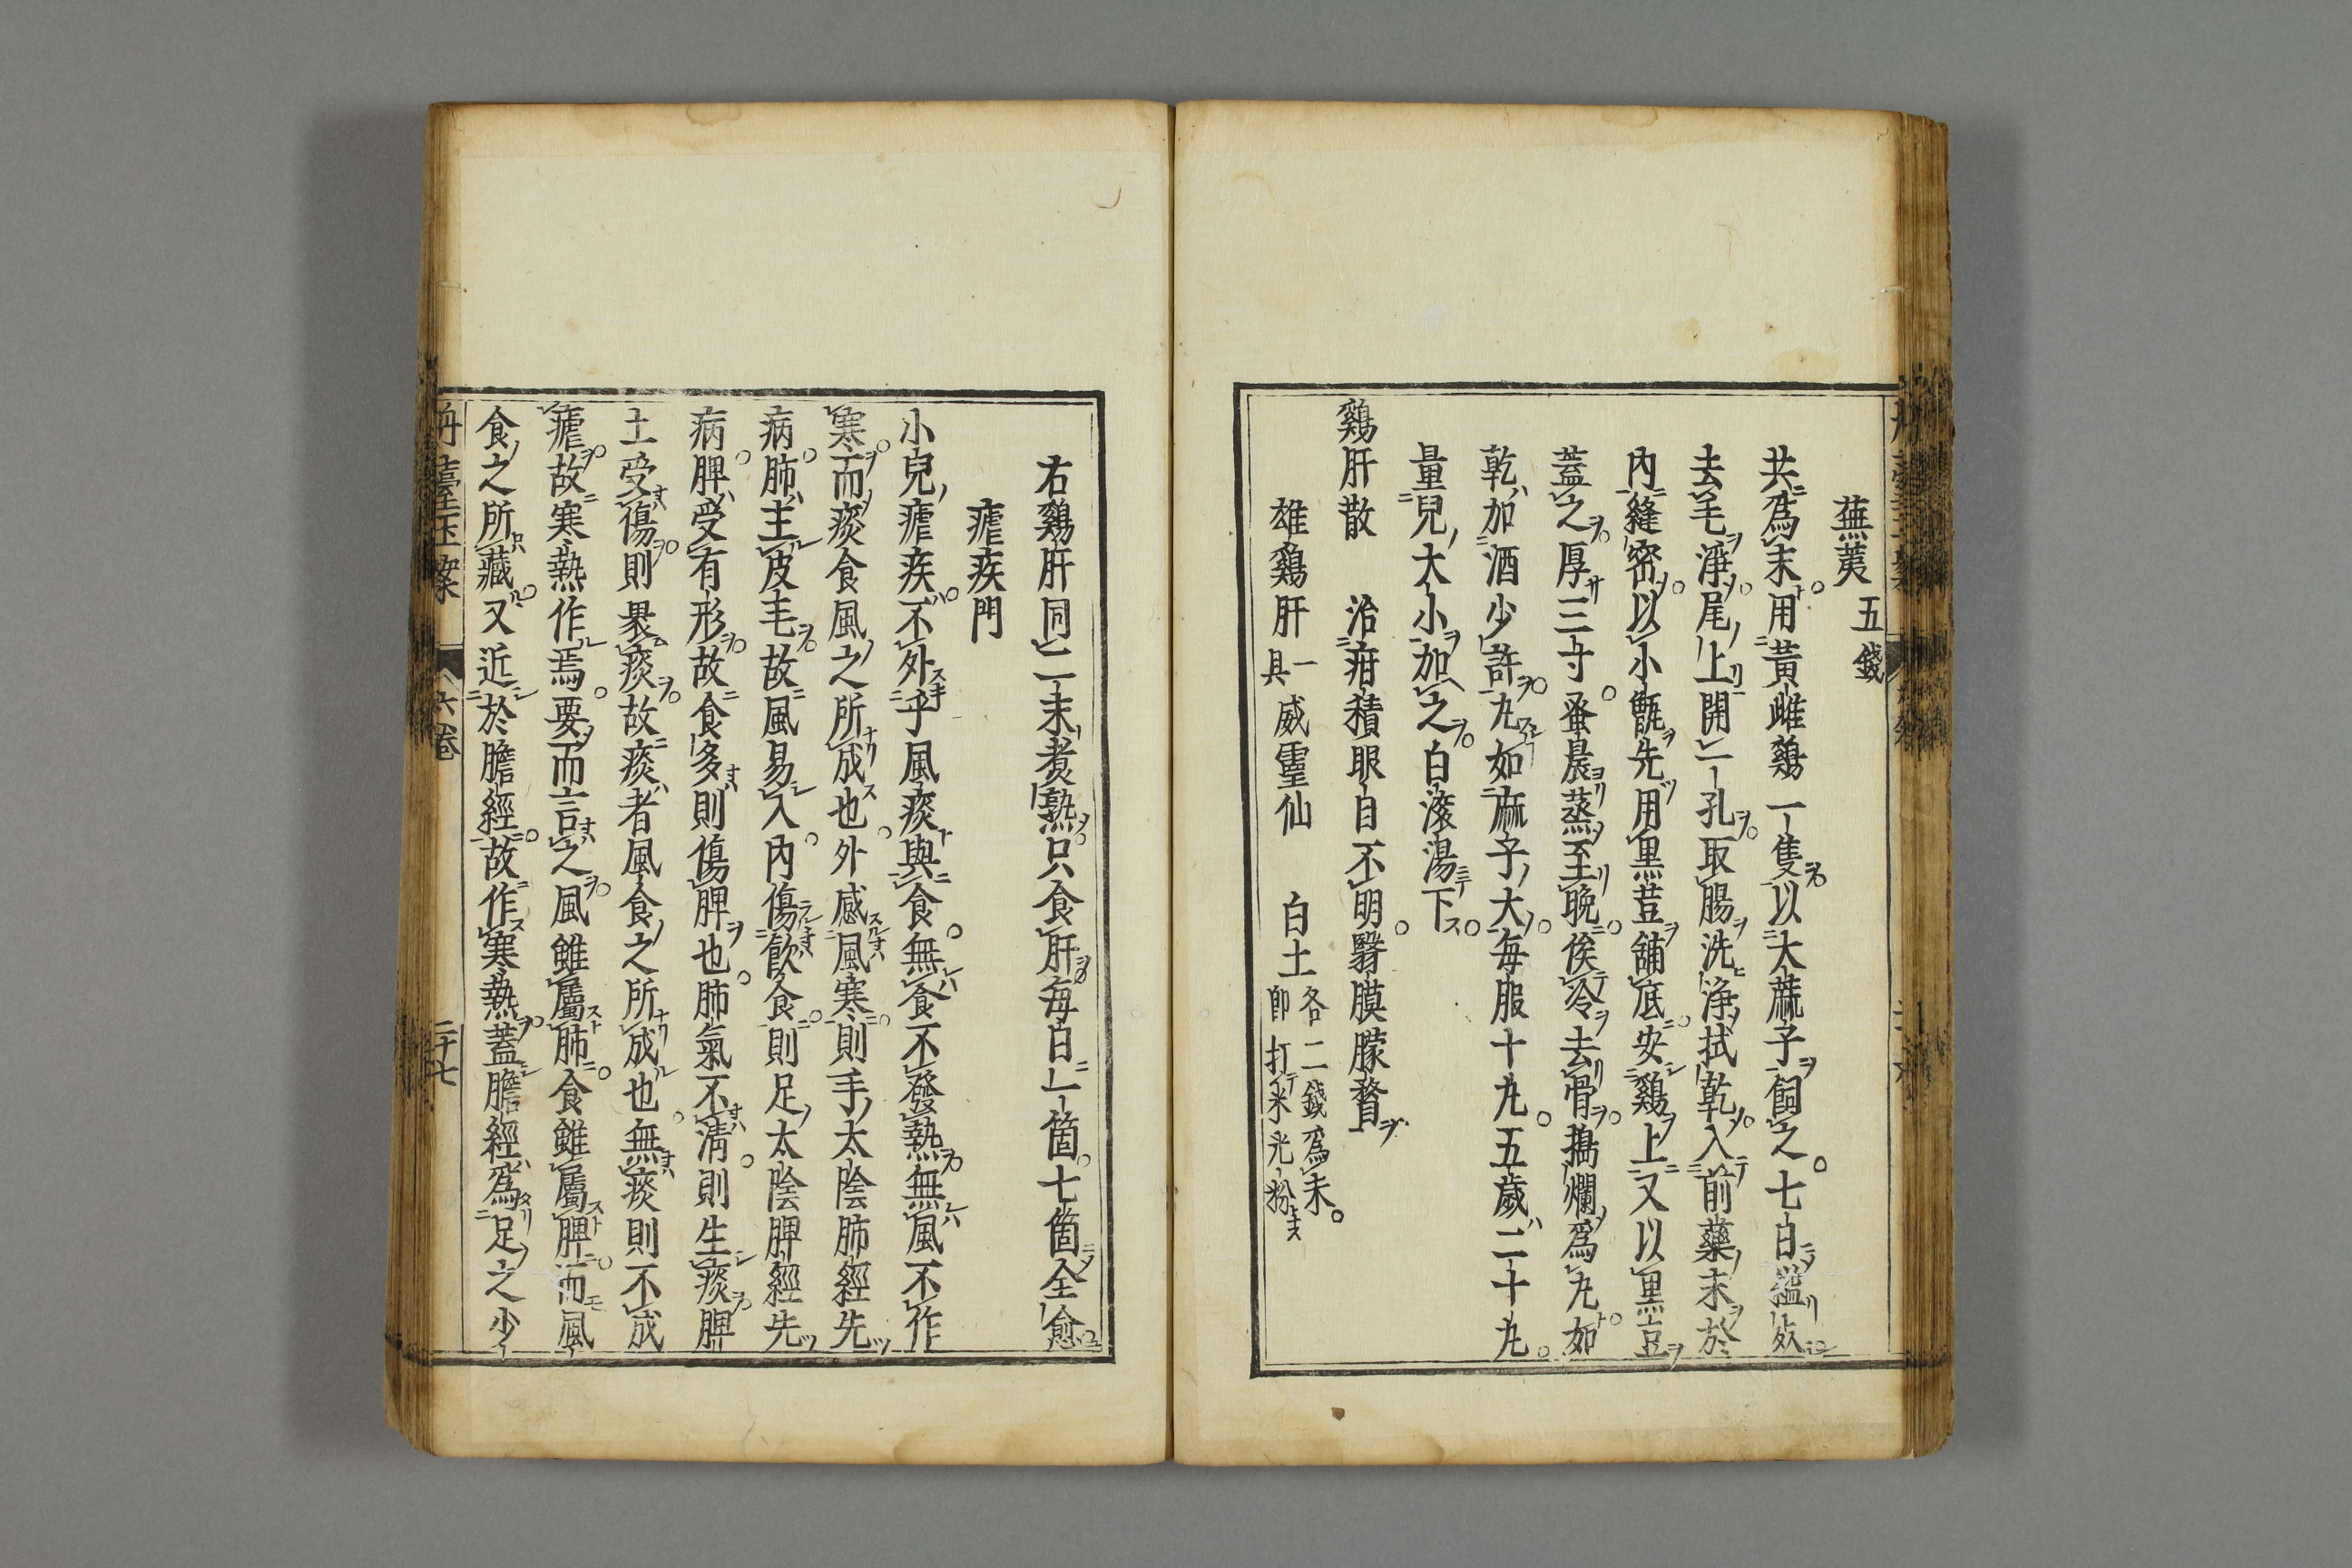 蕪荑 五錢
共爲末用黃雌鷄一隻以大蔴子飼之七日縊於
去毛淨尾上開一孔取腸洗淨拭乾入前藥末於
內縫密以小甑先用黒荳舖底安鷄上又以黒豆
蓋之厚三寸蚤晨蒸至晩俟冷去骨搗爛爲丸如
乾加酒少許丸如麻子大每服十丸五歲二十丸
量兒大小加之白滾湯下
鷄肝散 治疳積眼目不明翳膜朦瞀
雄鷄肝一具 威靈仙 白土各二錢爲末卽打米光粉
右鷄肝同二末煮熟只食肝每日一箇七箇全愈
瘧疾門
小兒瘧疾不外乎風痰與食無食不發熱無風不作
寒而痰食風之所成也外感風寒則手太陰肺經先
病肺主皮毛故風易入內傷飮食則足太陰脾經先
病脾受有形故食多則傷脾也肺氣不淸則生痰脾
土受傷則褁痰故痰者風食之所成也無痰則不成
瘧故寒熱作焉要而言之風雖屬肺食雖屬脾而風
食之所藏又近於膽經故作寒熱蓋膽經爲足之少
丹臺玉案 六卷 二十七